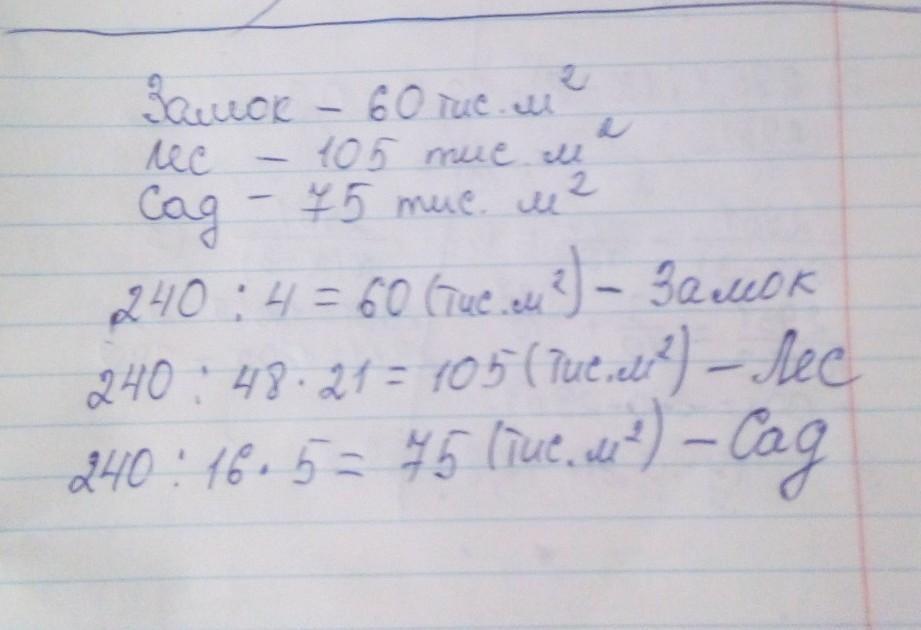 Замок – 60 тис. м²
Лес – 105 тис м²
Сад – 75 тис. м²
240 : 4 = 60 (тис. м²) – Замок
240 : 48 · 21 = 105 (тис. м²) – Лес
240 : 16 · 5 = 75 (тис. м²) – Сад